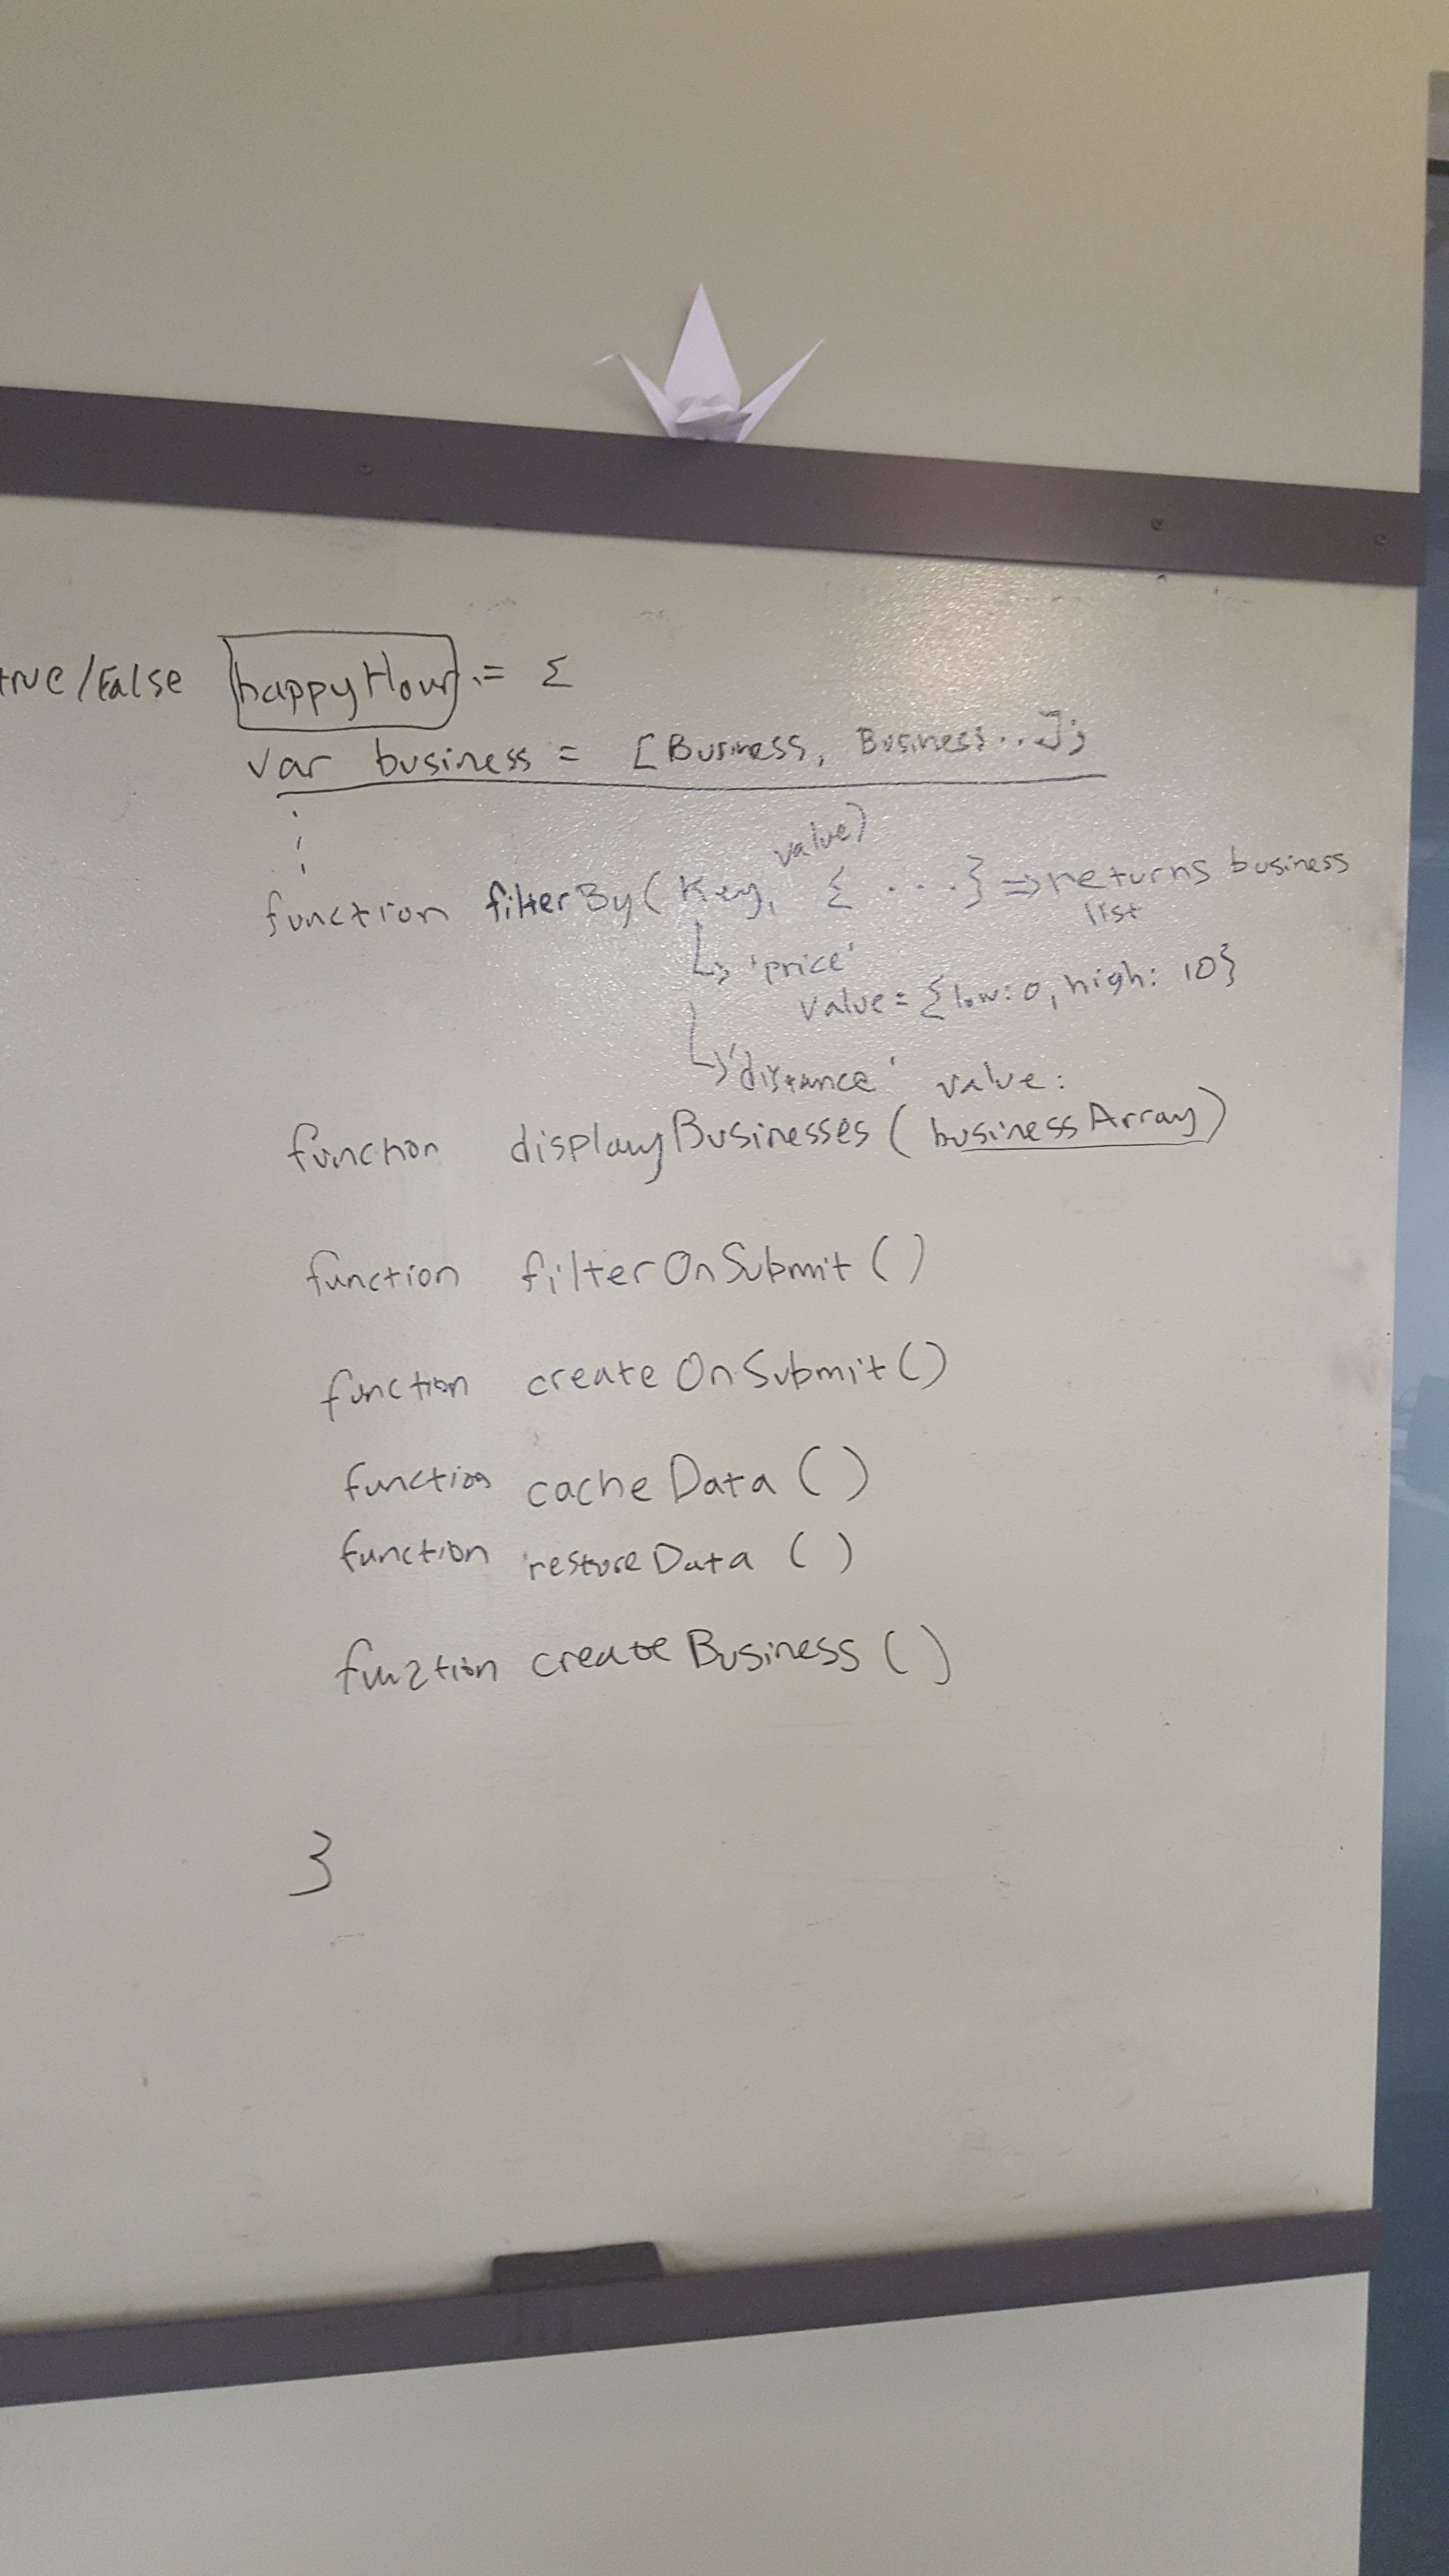 true/False happyHour = {
var business = [Business, Business...];
value)
function filterBy(Key, { ....} => returns business
list
'price'
value = {low: 0, high: 10}
'distance' value:
function displayBusinesses (businessArray)
function filterOnSubmit ()
function createOnSubmit()
function cacheData ()
function restoreData ()
function createBusiness ()
}